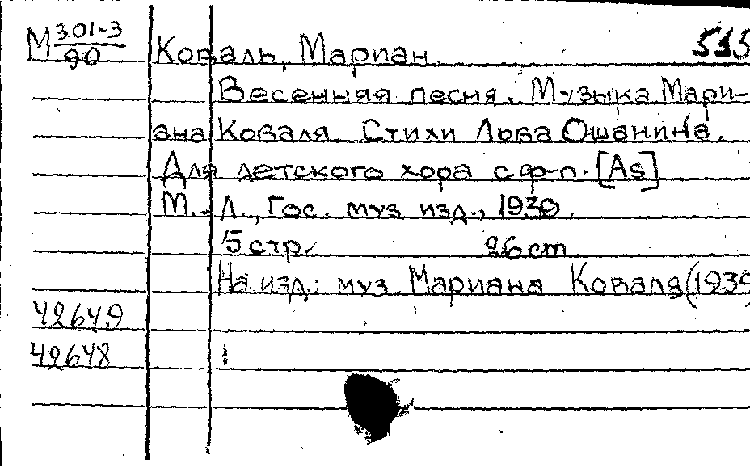 М 301-3/90 Коваль, Мариан. 515
Весенняя песня. Музыка Мари-
ана Коваля. Стихи Льва Ошанина.
Для детского хора с ф-п. [As]
М.-Л., Гос. муз изд., 1939.
5 стр. 26 cm
На изд.: муз Мариана Коваля (1939
42649
42648